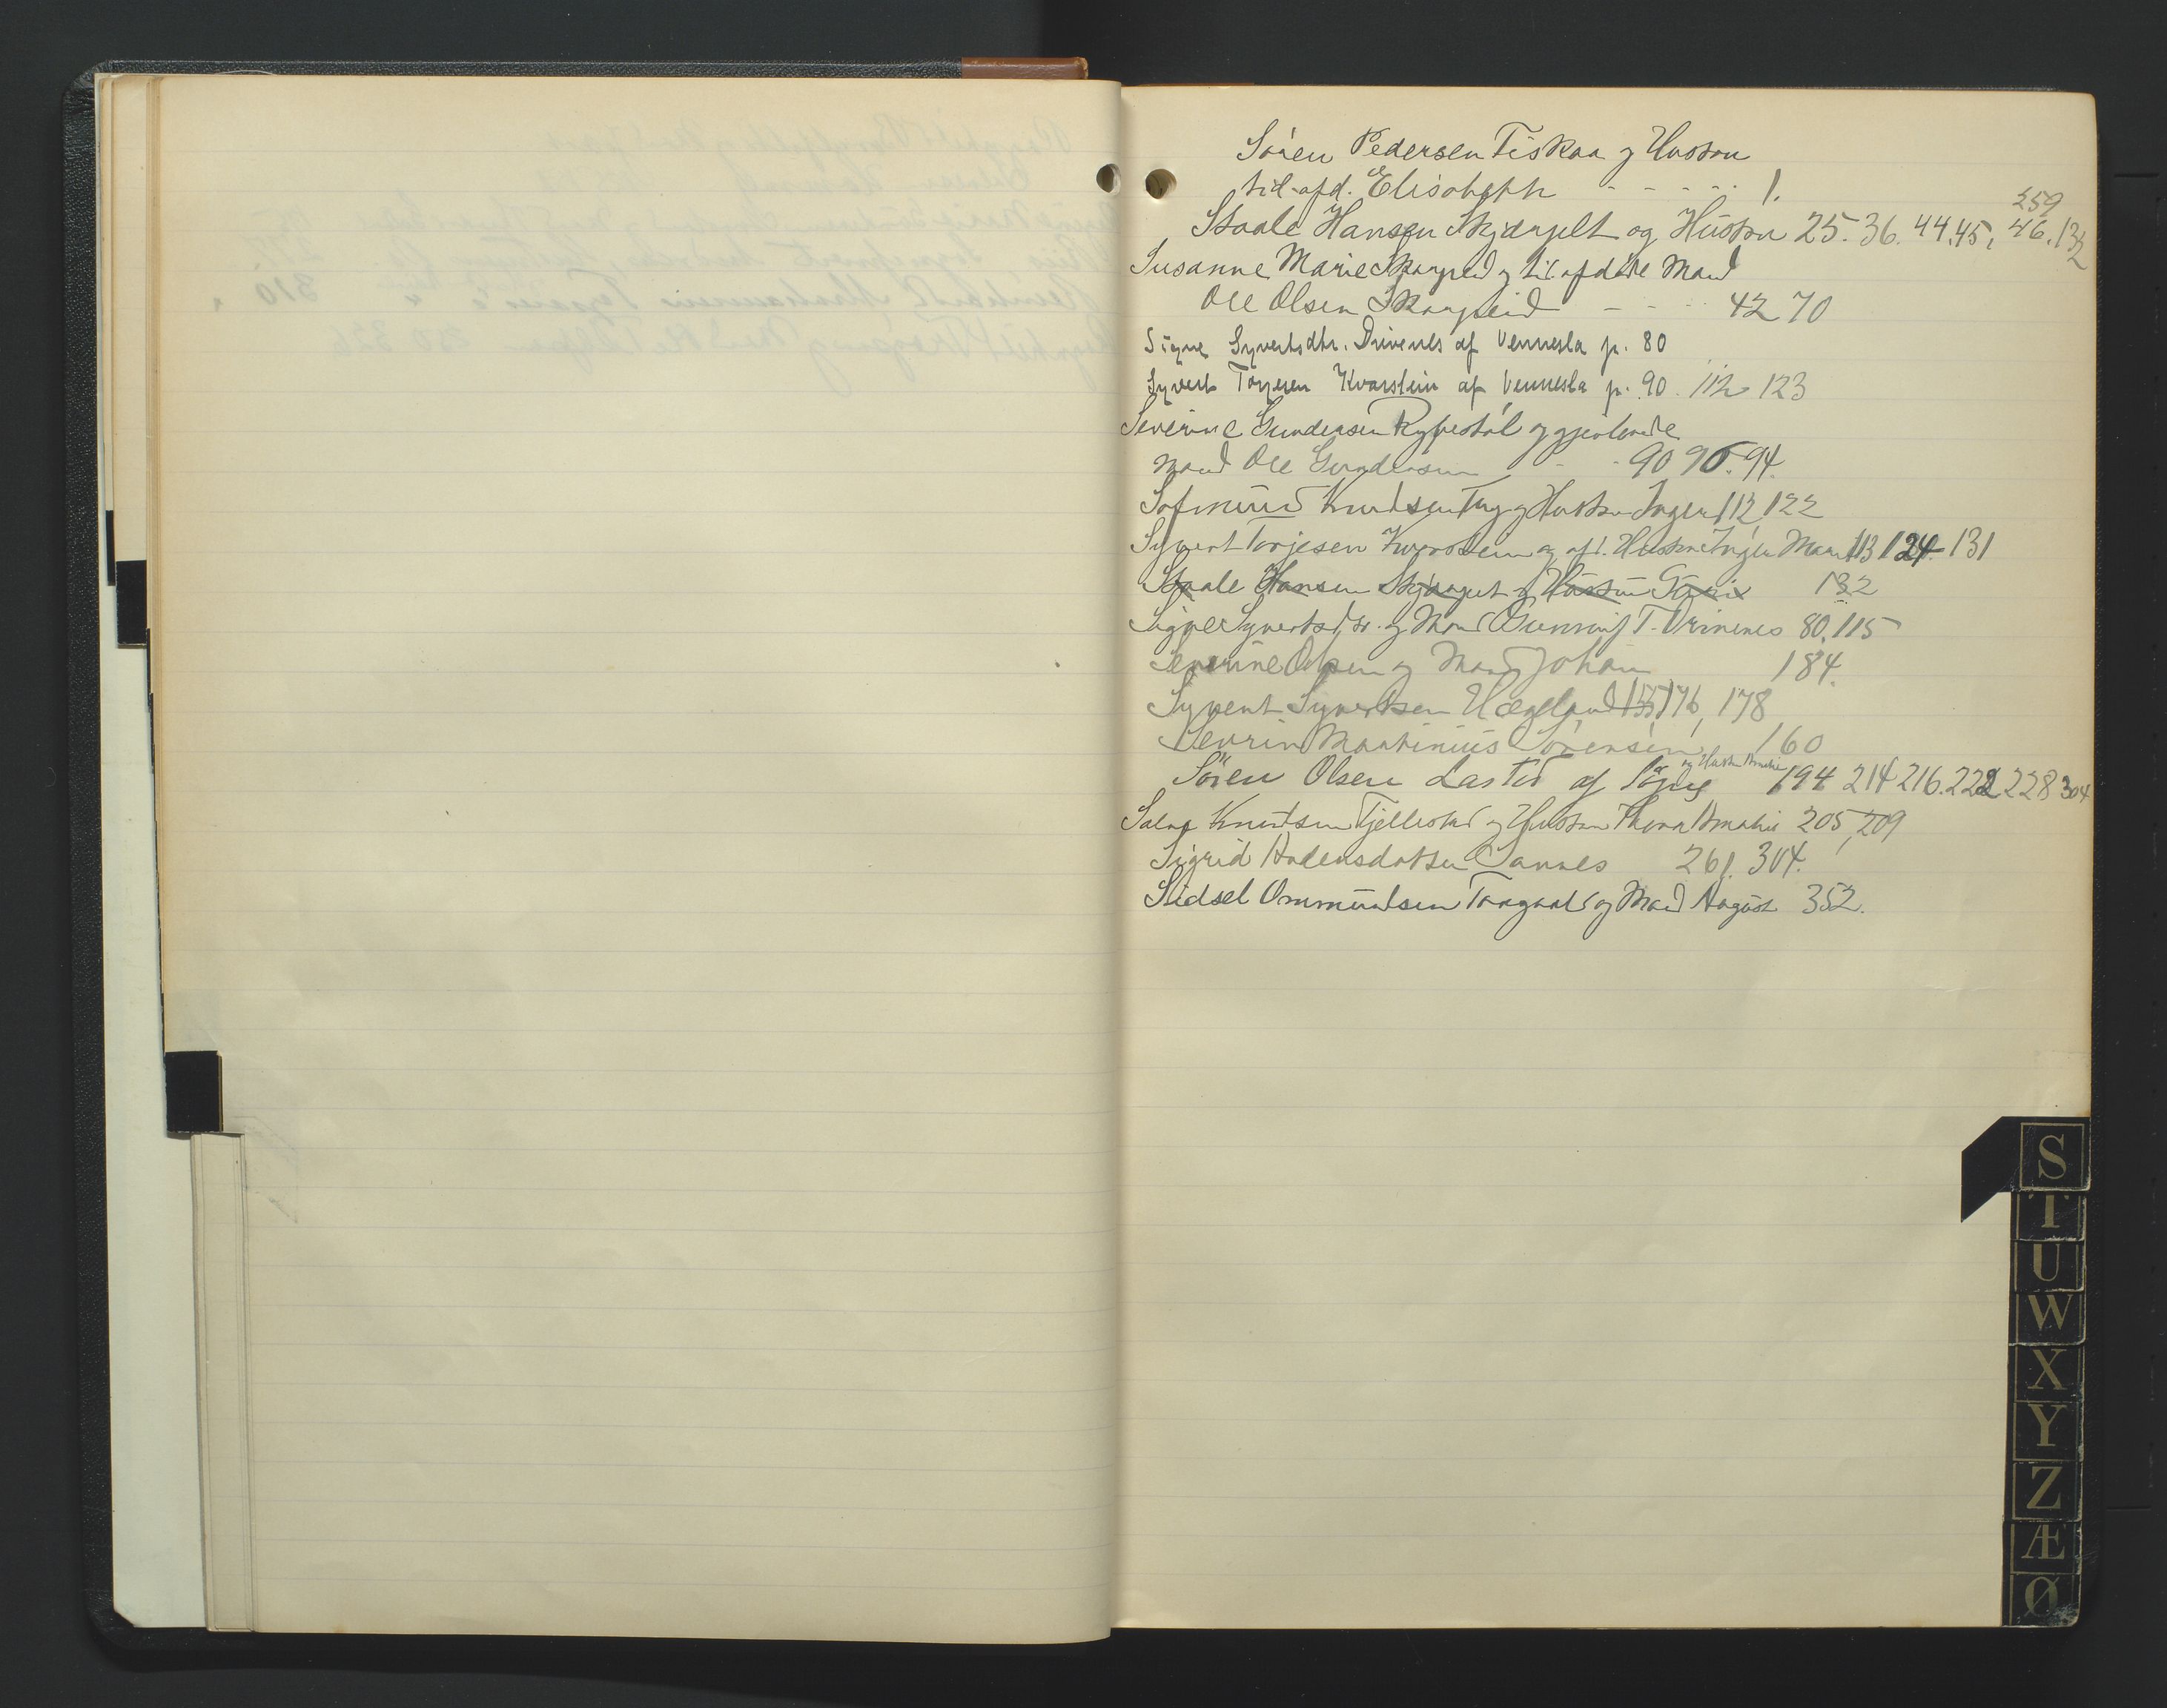 Sören Pedersen Fiskaa og Hustru
tid. afd. Elisabeth - - - - - 1.
259
Staale Hansen Skjærgelt og Hustru 25. 36. 44. 45, 46. 132
Susanne Marie og tid. afdøde Mand
Ole Olsen - - - 42 70
Signe Syvertsdtr. Drivenes af Vennesla p. 80
Syvert Torjesen Kvarstein af Vennesla p. 90. 112 123
Severine Gundersen og gjenlevende
Mand Ole Gundersen - - 90 94.
Sofmund Knudsen og Hustru Inger 113, 122
Syvert Torjesen Kvarstein og afd. Hustru Inger Marie 113 124 131
Staale Hansen og Hustru 132
Signe Syvertsdtr. og Mand Gunnuf T. Drivenes 80, 115
Severine Olsen og Mand Johan 184.
Syvert Syvertsen Hægeland 155, 176, 178
Sevrin Martinius Sörensen 160
og Hustru Amalie
Sören Olsen Lastad af Sögne 194 214 216. 222 228 304
Salve Knutsen Fjellestad og Hustru Thora Amalie 205, 209
Sigrid Sannes 261. 304.
Sidsel Ommundsen og Mand August 352.
S
T
U
W
X
Y
Z
Æ
Ø